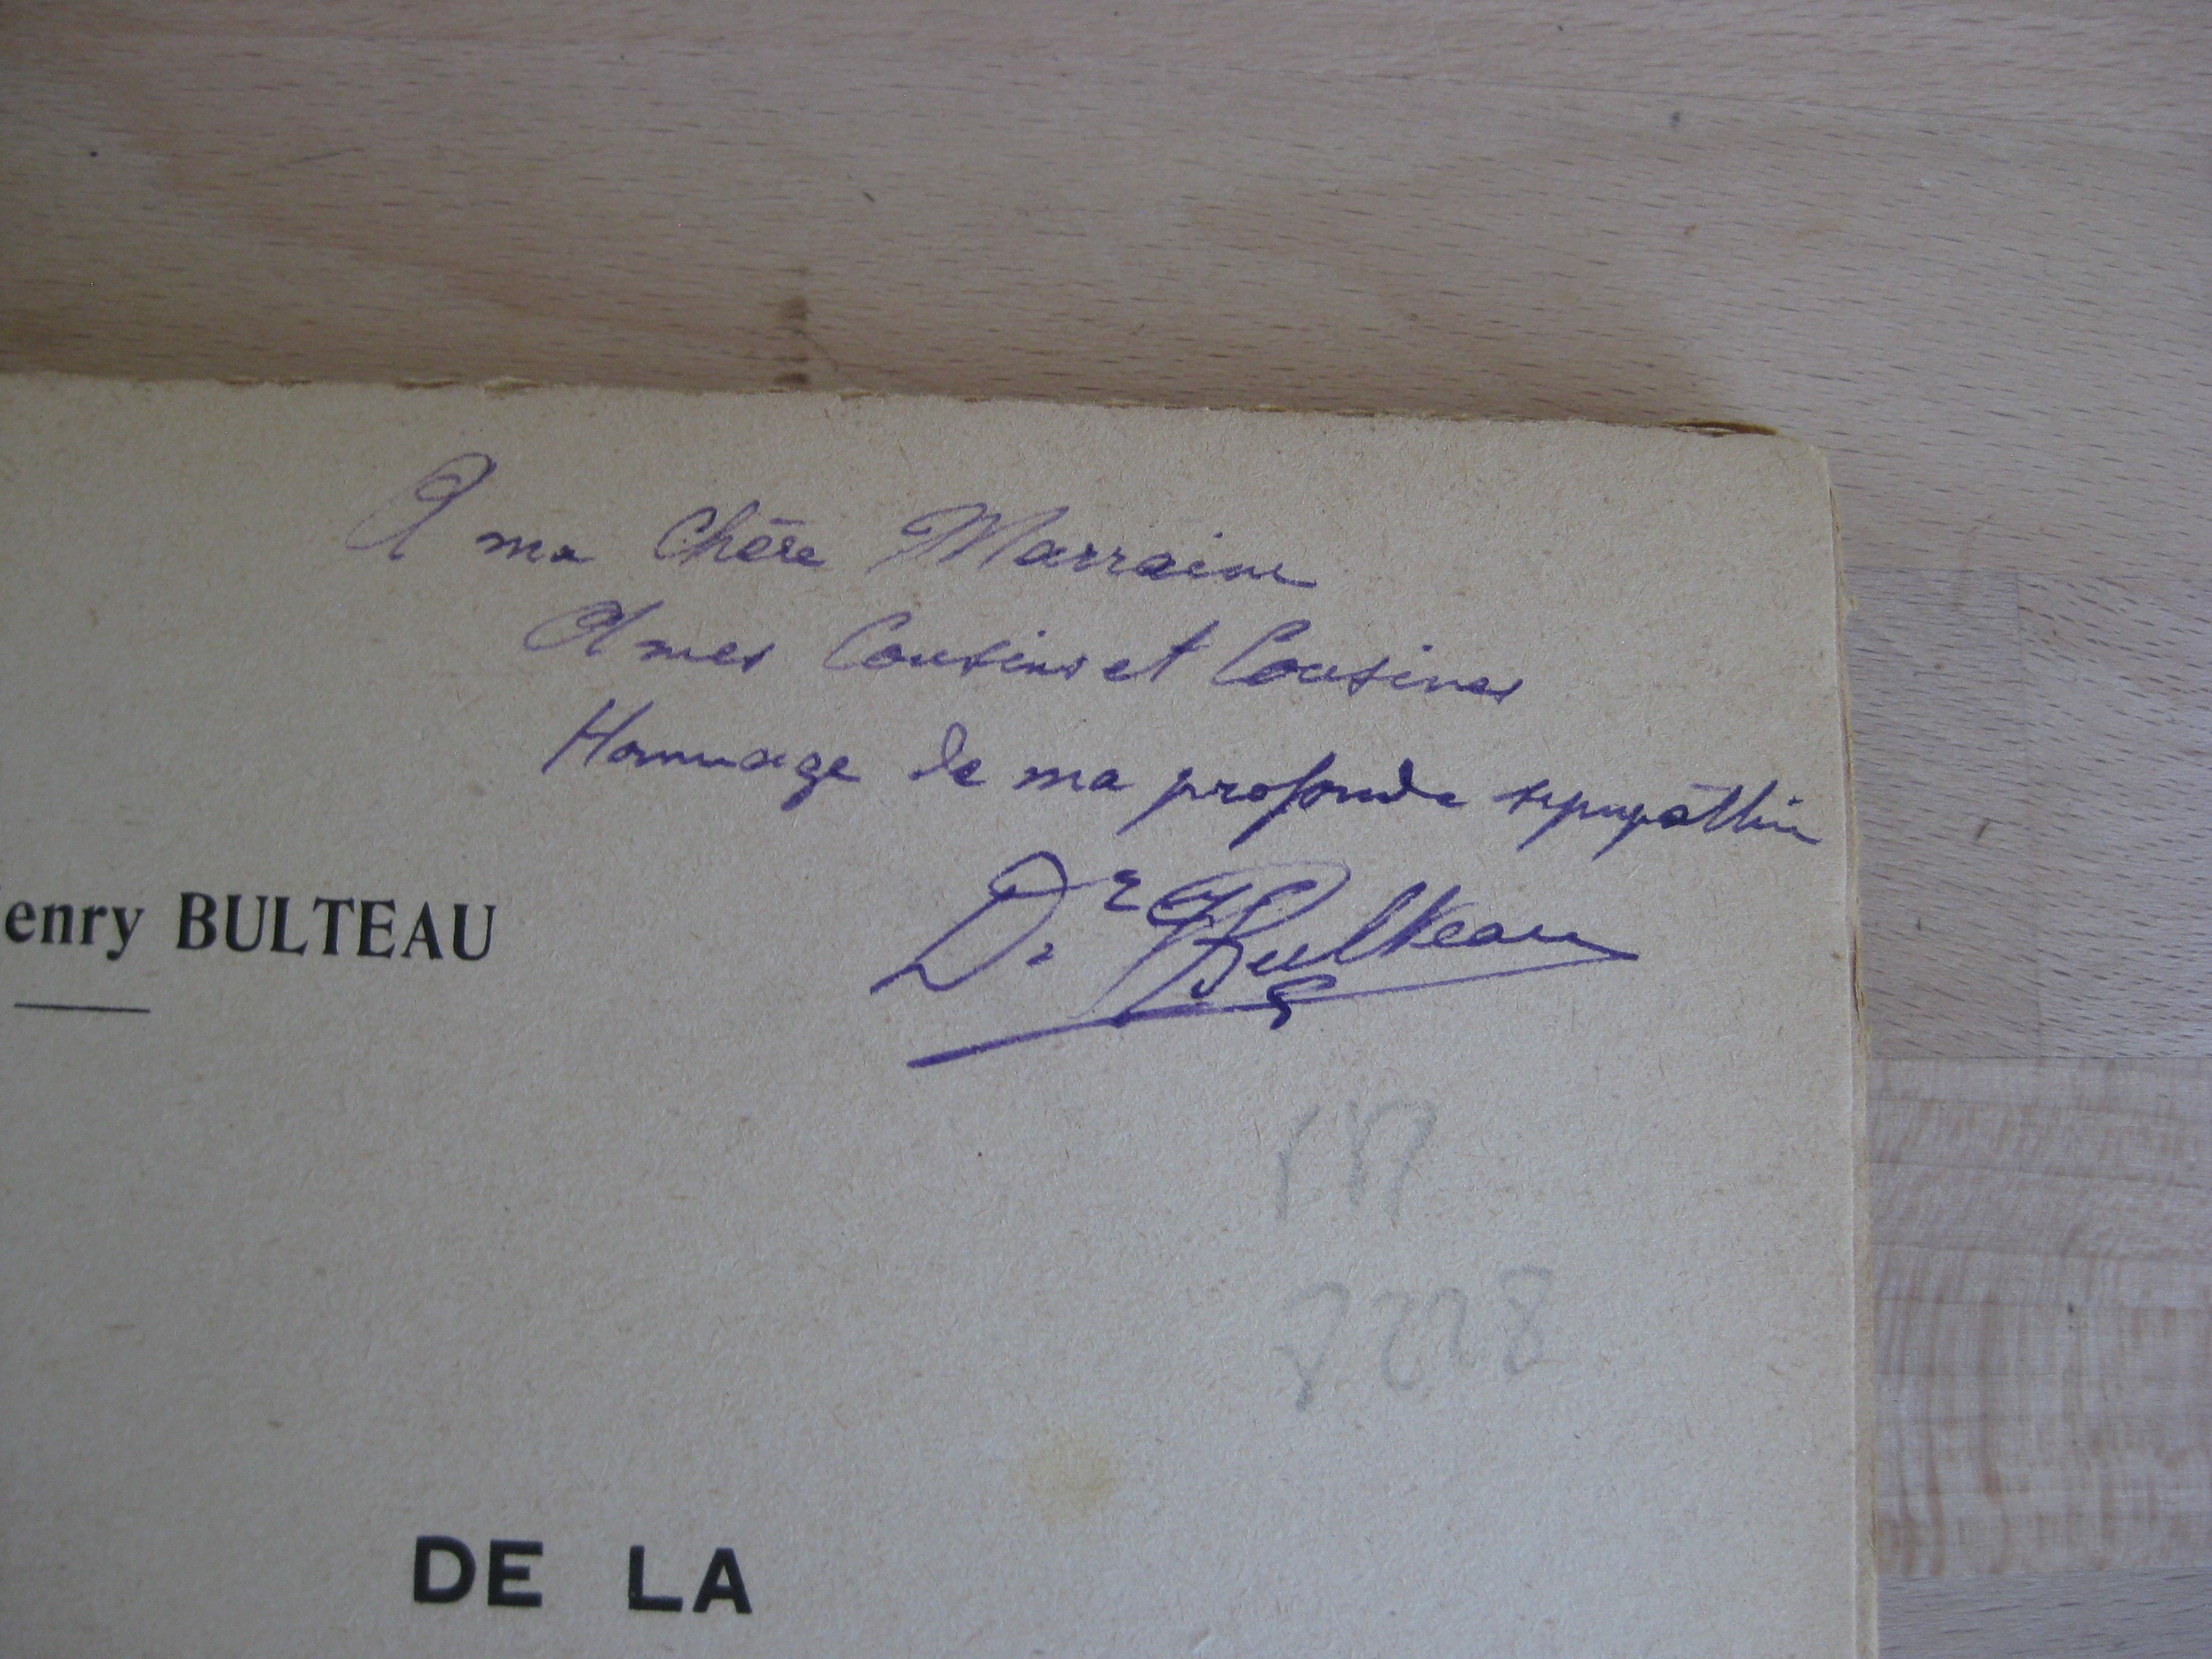 A ma Chère Marraine
A mes Cousins et Cousines
Hommage de ma profonde sympathie
Dr Bulteau
enry BULTEAU
8228
DE LA